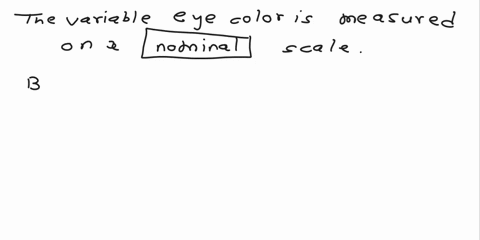 The variable eye color is measured
on a nominal scale.
B